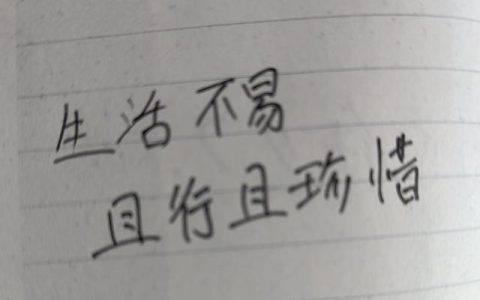 生活不易
且行且珍惜